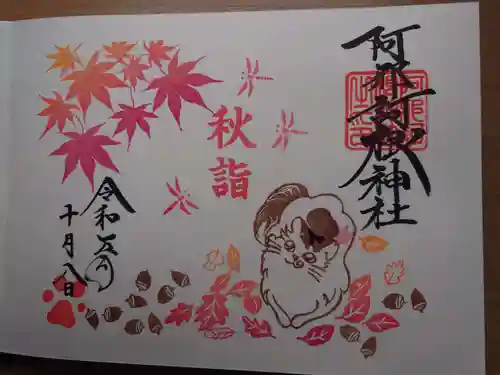 阿邪訶根神社
秋詣
令和五年
十月八日